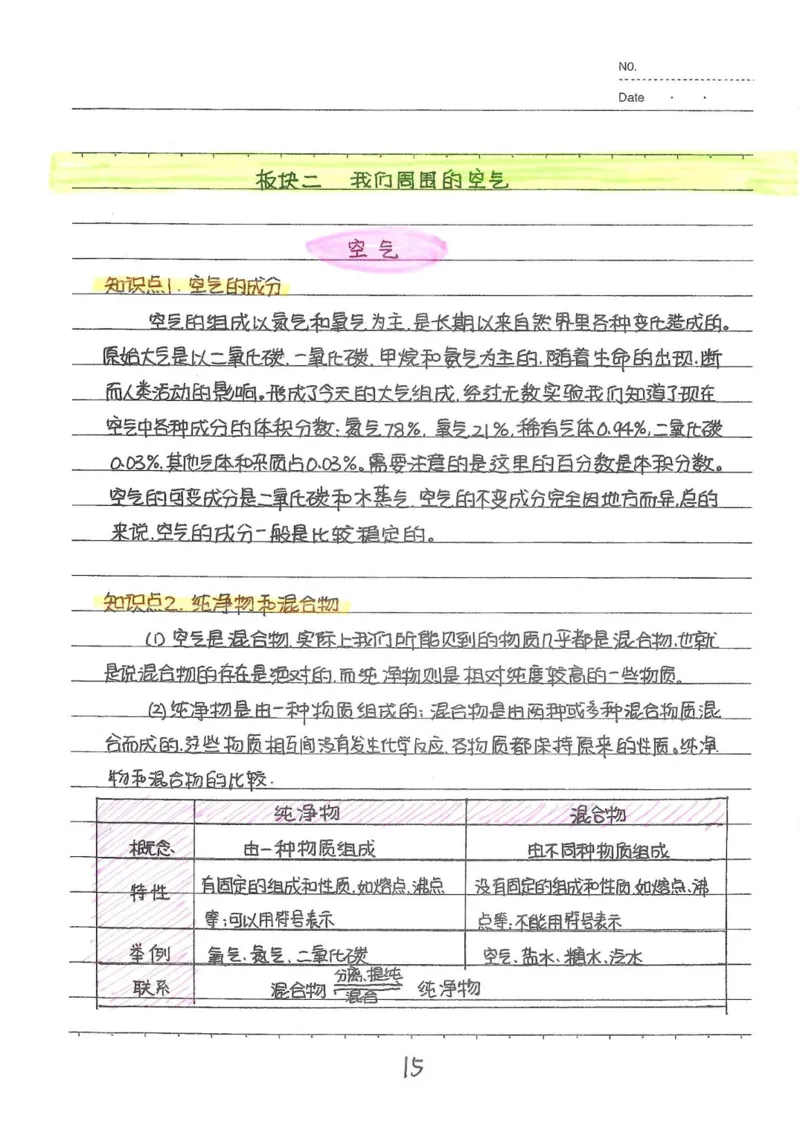 NO.
Date
板块二 我们周围的空气
空气
知识点1. 空气的成分
空气的组成以氮气和氧气为主,是长期以来自然界里各种变化造成的。
原始大气是以二氧化碳、一氧化碳、甲烷和氨气为主的,随着生命的出现,断
而人类活动的影响。形成了今天的大气组成,经过无数实验我们知道了现在
空气中各种成分的体积分数:氮气78%,氧气21%,稀有气体0.94%,二氧化碳
0.03%,其他气体和杂质占0.03%。需要注意的是这里的百分数是体积分数。
空气的可变成分是二氧化碳和水蒸气,空气的不变成分完全因地方而异,总的
来说,空气的成分一般是比较稳定的。
知识点2. 纯净物和混合物
(1) 空气是混合物,实际上我们所能见到的物质几乎都是混合物,也就
是说混合物的存在是绝对的,而纯净物则是相对纯度较高的一些物质。
(2) 纯净物是由一种物质组成的;混合物是由两种或多种混合物质混
合而成的,这些物质相互间没有发生化学反应,各物质都保持原来的性质。纯净
物和混合物的比较.
纯净物 混合物
概念 由一种物质组成 由不同种物质组成
特性 有固定的组成和性质,如熔点、沸点 没有固定的组成和性质,如熔点、沸
等;可以用符号表示 点等;不能用符号表示
举例 氧气、氮气、二氧化碳 空气、盐水、糖水、汽水
联系 混合物 分离、提纯 混合 纯净物
15